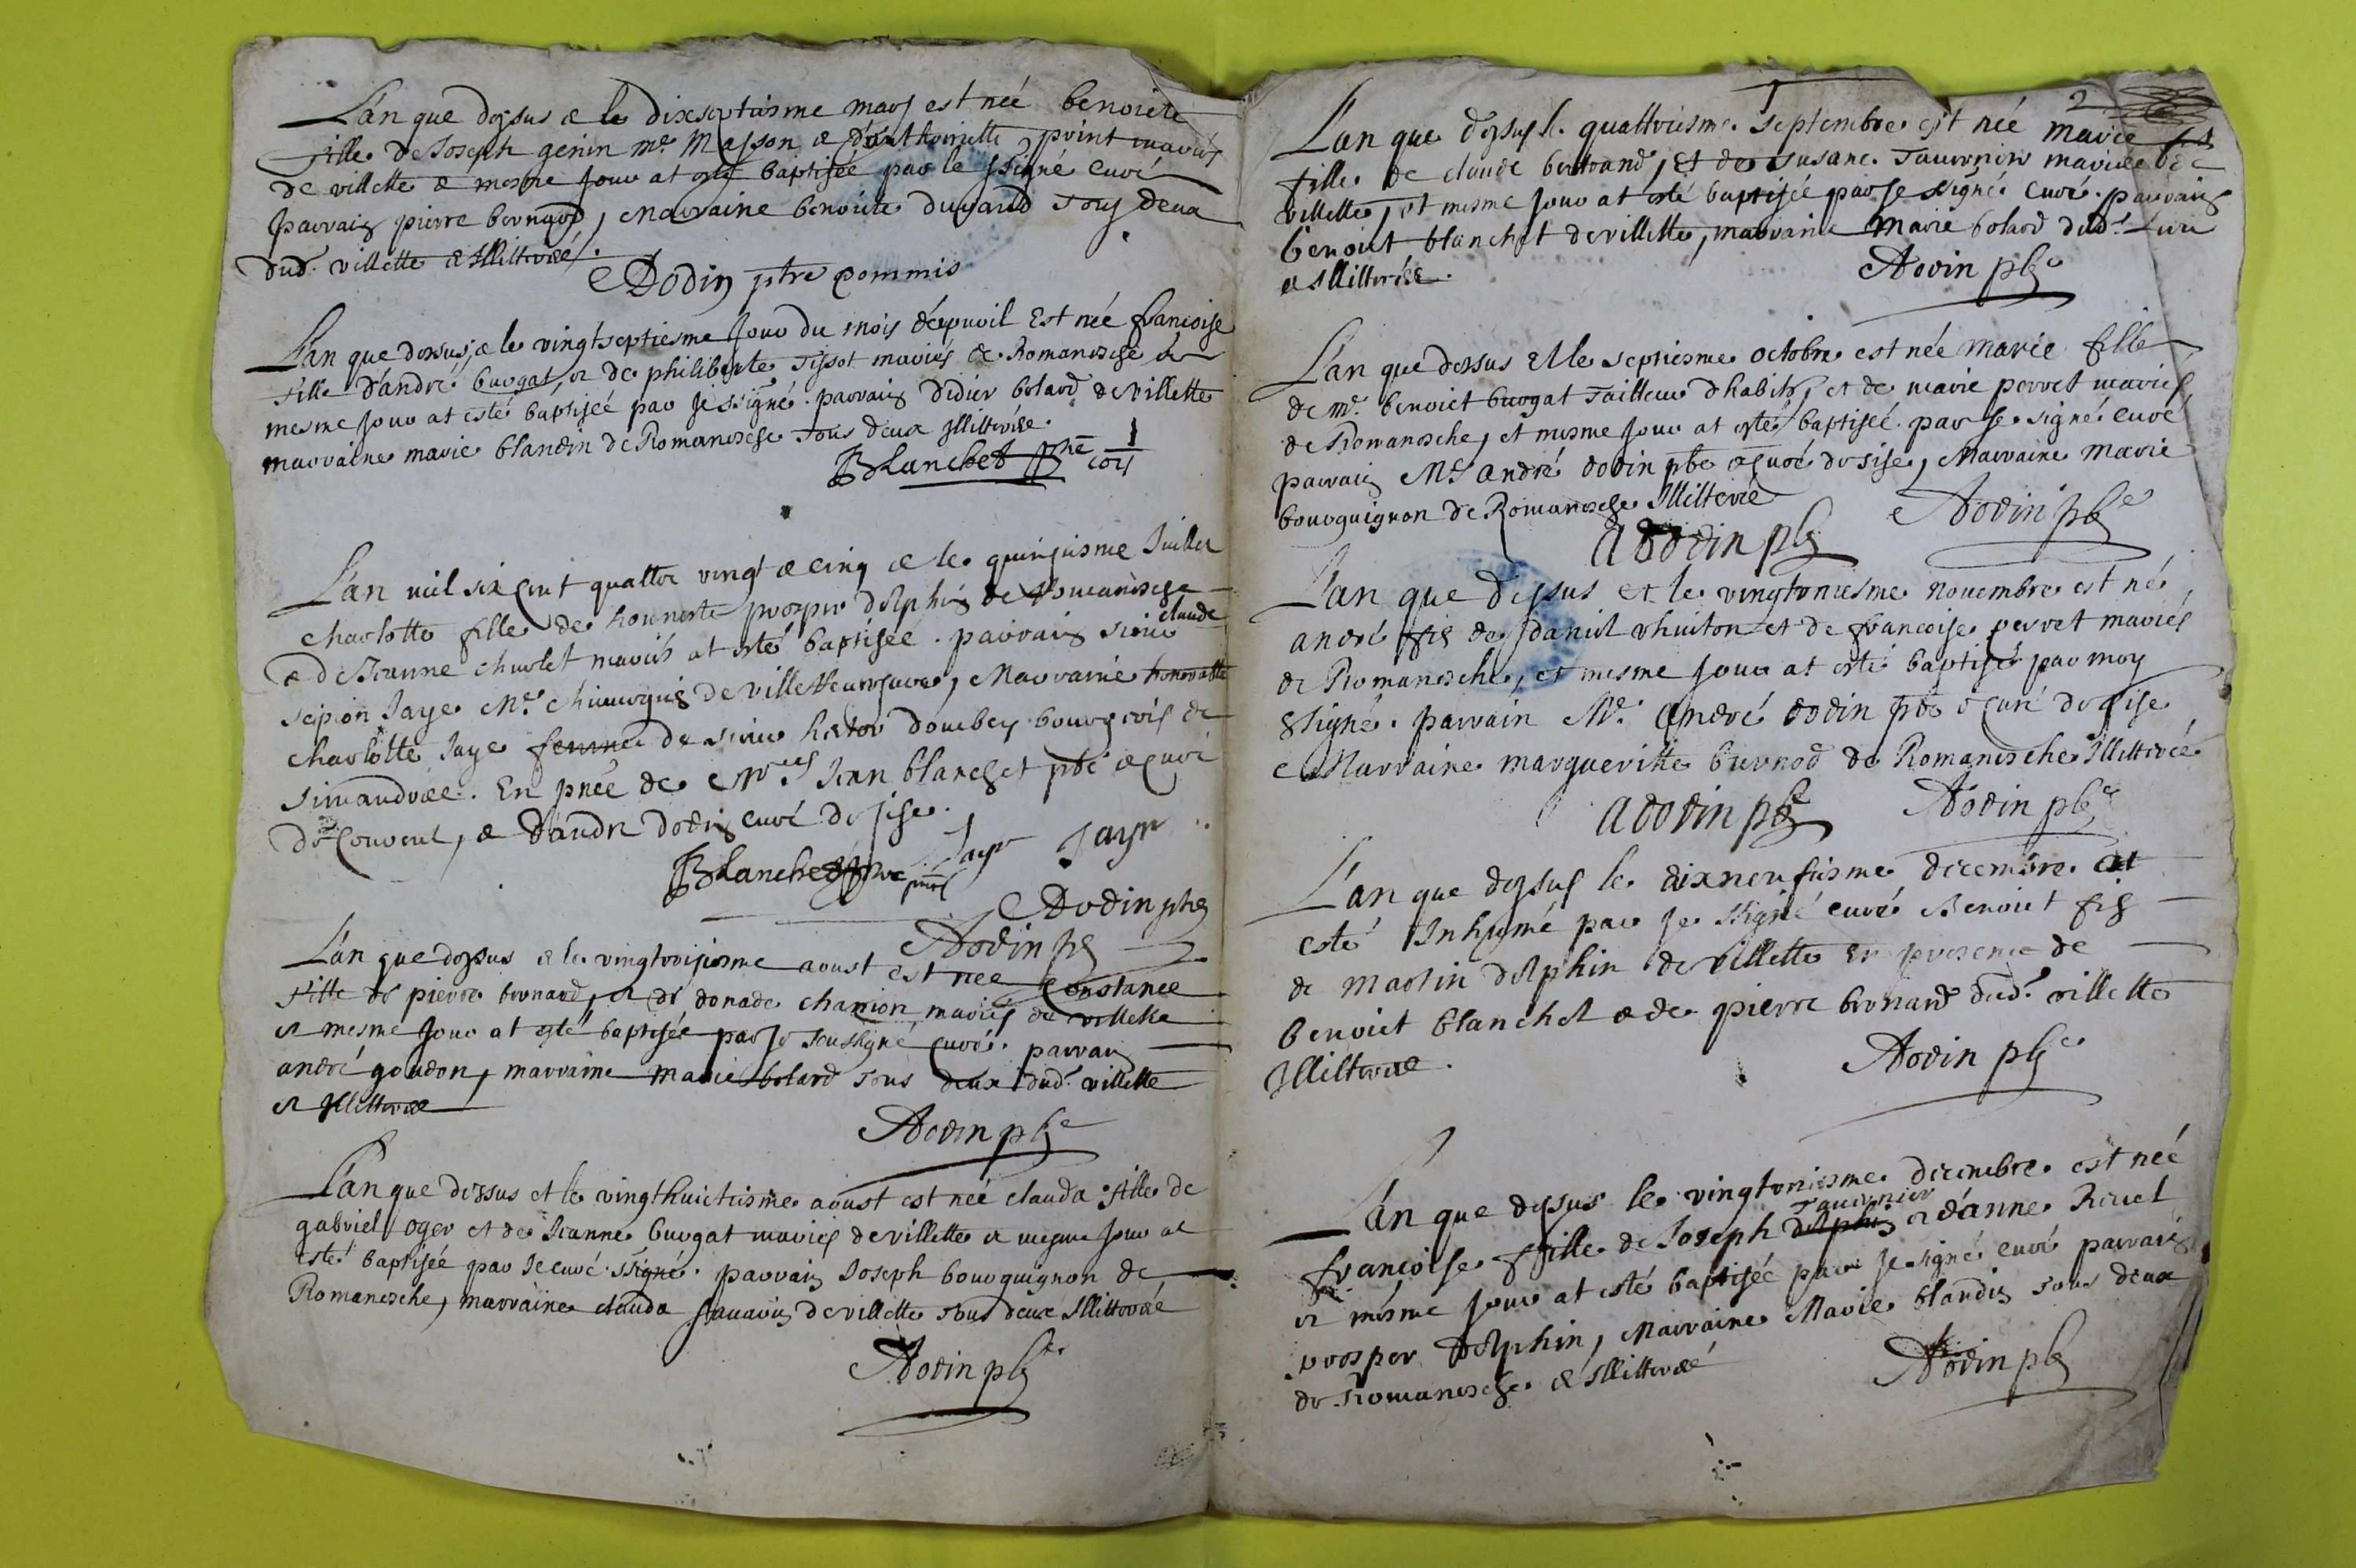 L'an que dessus & le dixseptiesme mars est née benoiste
fille de Joseph genin me masson & d'anthoinette point mariés
de villette & mesme jour at esté baptisée par le ssigné curé
parrain pierre bernard, marraine benoiste dugard tous deux
dud. villette & Illitterée.
Dodin ptre commis
L'an que dessus, & le vingtseptiesme jour du mois d'apvril est née francoise
fille d'andré burgat, et de philiberte tissot mariés de Romanesche &
mesme jour at esté baptisée par je ssigné. parrain didier bolard de villette
marraine marie blandin de Romanesche tous deux illitterée.
Blanchet
L'an mil six cent quattre vingt & cinq & le quinziesme Juillet
charlotte fille de honneste prosper delphin de Romanesche
claude
& de Jeanne charlet mariés at esté baptisée. parrain sieur
scipion Jaye Me. chirurgien de villette, marraine honorable
charlotte Jaye femme de sieur hector doumbey bourgeois de
simandrée. En pnce de Mres Jean blanchet pbr & curé
de Couvent, & d'andre dodin curé de sise.
Blanchet Jaye Jaye
Dodin pbr
ADodin pbr
L'an que dessus & le vingtroisiesme aoust est née constance
fille de pierre bernard, et de donade chanion mariés de villette
et mesme jour at esté baptisée par je soussigné curé. parrain
andré goudon, marraine marie bolard tous deux dud. villette
et Illitterée
ADodin pbr
L'an que dessus et le vingthuictiesme aoust est née clauda fille de
gabriel oger et de Jeanne burgat mariés de villette et mesme jour at
esté baptisée par je curé ssigné. parrain Joseph bourguignon de
Romanesche, marraine clauda savarin de villette tous deux Illitterée
ADodin pbr
2
L'an que dessus le quattriesme septembre est née marie
fille de claude bertrand, et de susane tavernier mariée de
villette, et mesme jour at esté baptisée par je ssigné curé. parrain
benoict blanchet de villette, marraine marie bolard dud. lieu
& Illitterée.
ADodin pbr
L'an que dessus et le septiesme octobre est née marie fille
de me. benoict burgat tailleur d'habits, et de marie perret mariés
de Romanesche, et mesme jour at esté baptisée par je signé curé
parrain Me andré dodin pbr & curé de sise, marraine marie
bourguignon de Romanesche Illiterée
ADodin pbr ADodin pbr
L'an que dessus et le vingtoniesme novembre est né
andré fils de daniel et de francoise perret mariés
de Romanesche, et mesme jour at esté baptisé par moy
ssigné. parrain Me. andré dodin pbr & curé de sise
Marraine margueritte burnod de Romanesche Illitterée
ADodin pbr ADodin pbr
L'an que dessus le dixneufiesme decembre at
esté Inhumé par je ssigné curé Benoict fils
de martin delphin de villette en presence de
benoict blanchet & de pierre bernard dud. villette
Illitterée.
ADodin pbr
L'an que dessus le vingtoniesme decembre est née
tavernier
francoise fille de Joseph delphin et d'anne Revel
et mesme jour at esté baptisée par je signé curé parrain
prosper delphin, marraine Marie blandin tous deux
de Romanesche & Illitterée
ADodin pbr